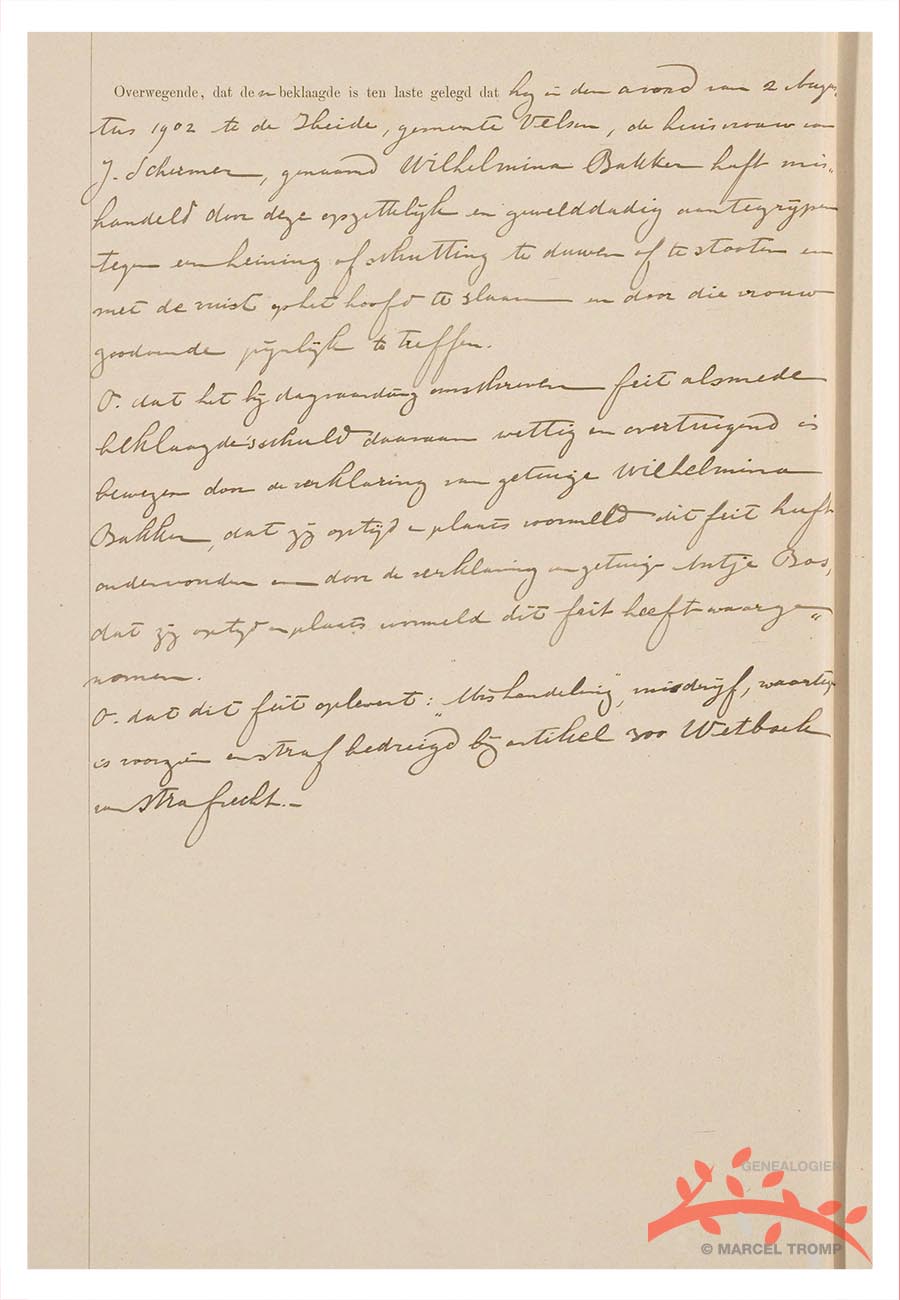 Overwegende, dat den beklaagde is ten laste gelegd dat hij in den avond van 2 Augus-
tus 1902 te de Heide, gemeente Velsen, de huisvrouw van
J. Schermer, genaamd Wilhelmina Bakker heeft mis„
handeld door deze opzettelijk en gewelddadig aantegrijpen
tegen een heining of schutting te duwen of te stooten en
met de vuist op het hoofd te slaan en door die vrouw
zoodoende pijnlijk te treffen.
O. dat het bij dagvaarding omschreven feit alsmede
beklaagde's schuld daaraan wettig en overtuigend is
bewezen door de verklaring van getuige Wilhelmina
Bakker, dat zij op tijd en plaats voormeld dit feit heeft
ondervonden en door de verklaring van getuige Antje Bos,
dat zij op tijd en plaats voormeld dit feit heeft waarge„
nomen.
O. dat dit feit oplevert: „Mishandeling", misdrijf, waartegen
is voorzien en straf bedreigd bij artikel 300 Wetboek
van Strafrecht.-
GENEALOGIE
© MARCEL TROMP